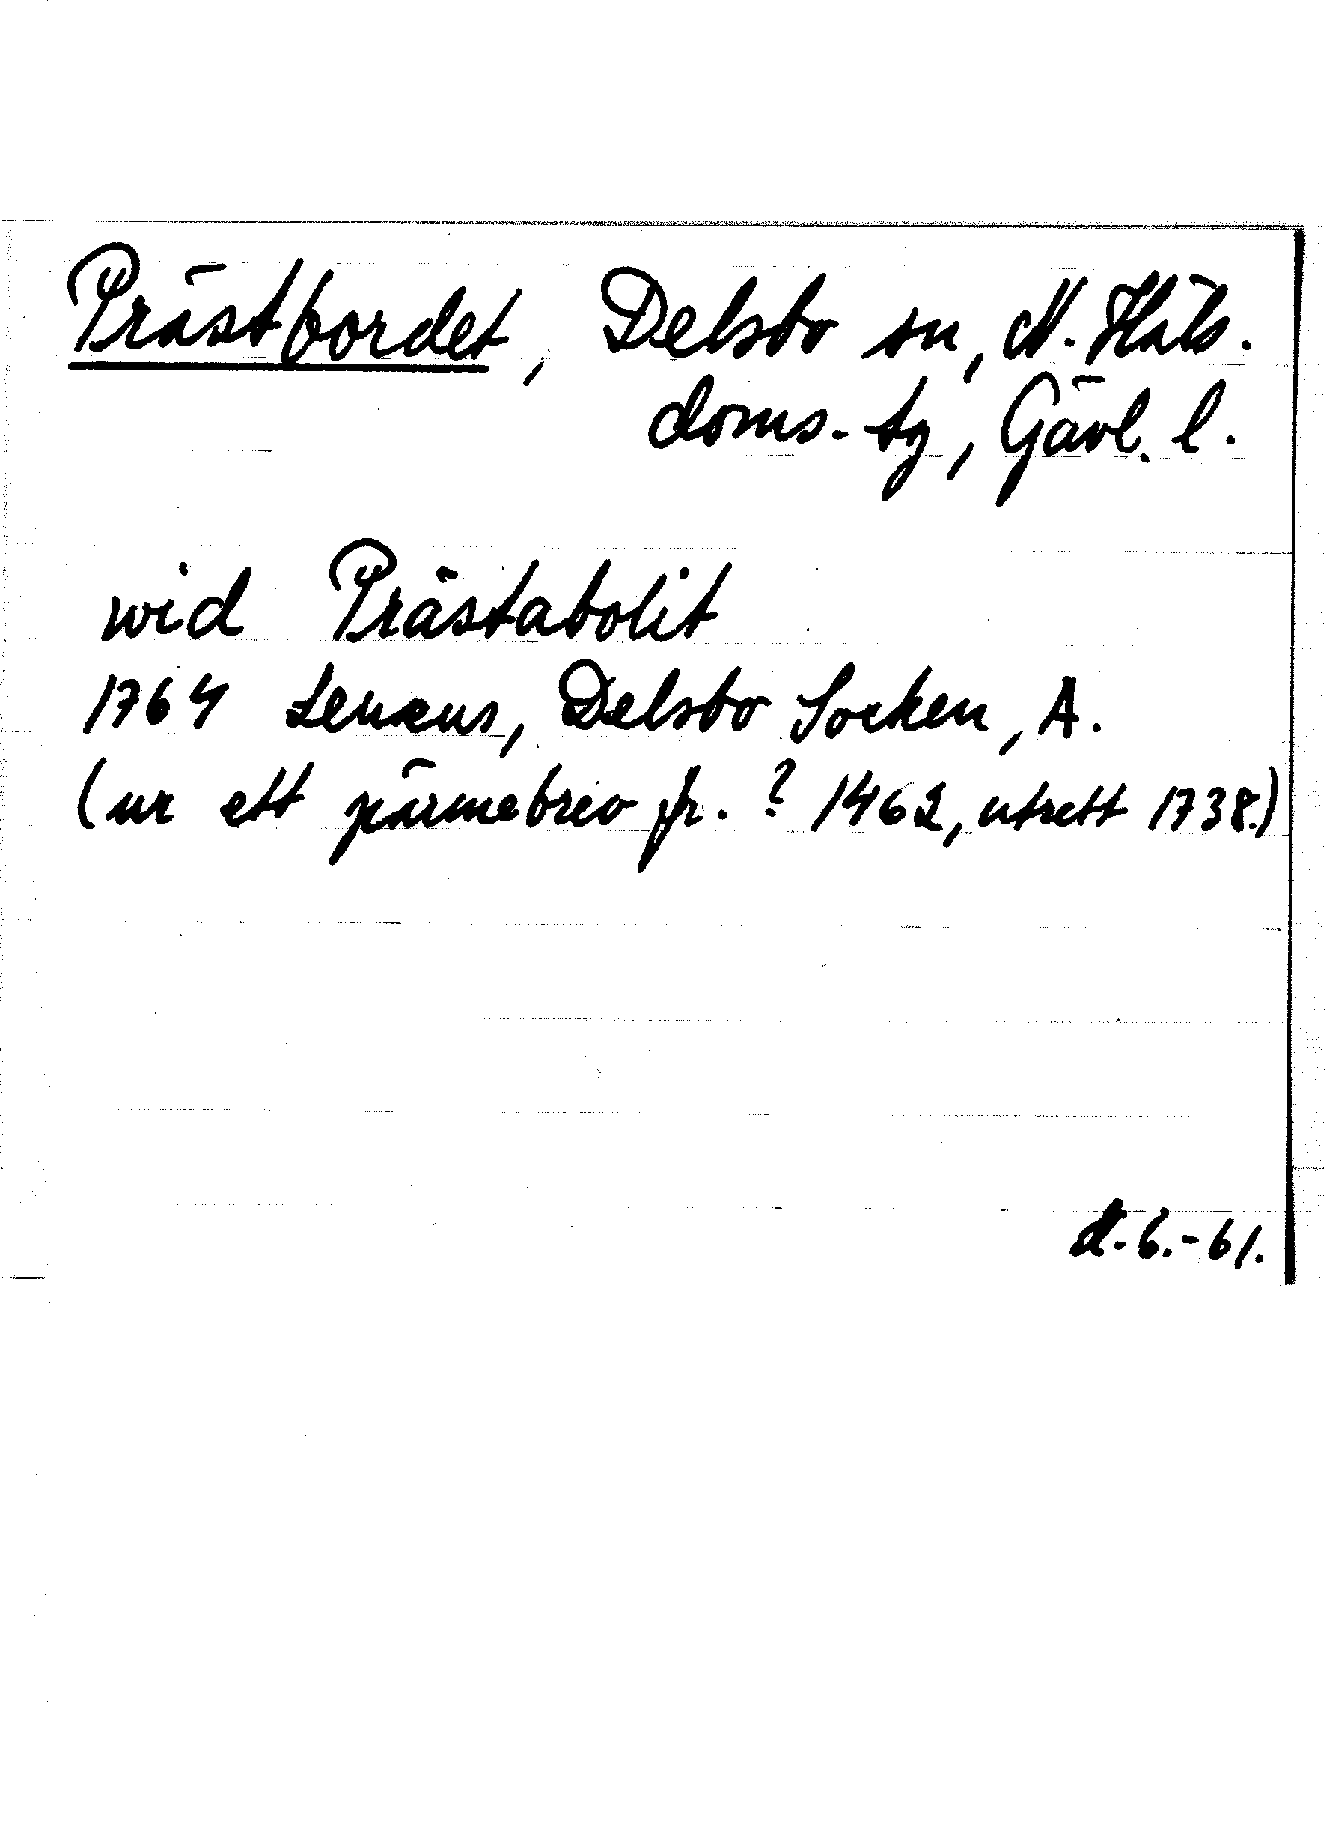 Prästbordet, Delsbo sn, N. Häls.
doms. tg, Gävl. l.
wid Prästabolit
1764 Lenæus, Delsbo Socken, A.
(ur ett pärmebrev fr. ? 1462, utrett 1738.)
d. 6.-61.